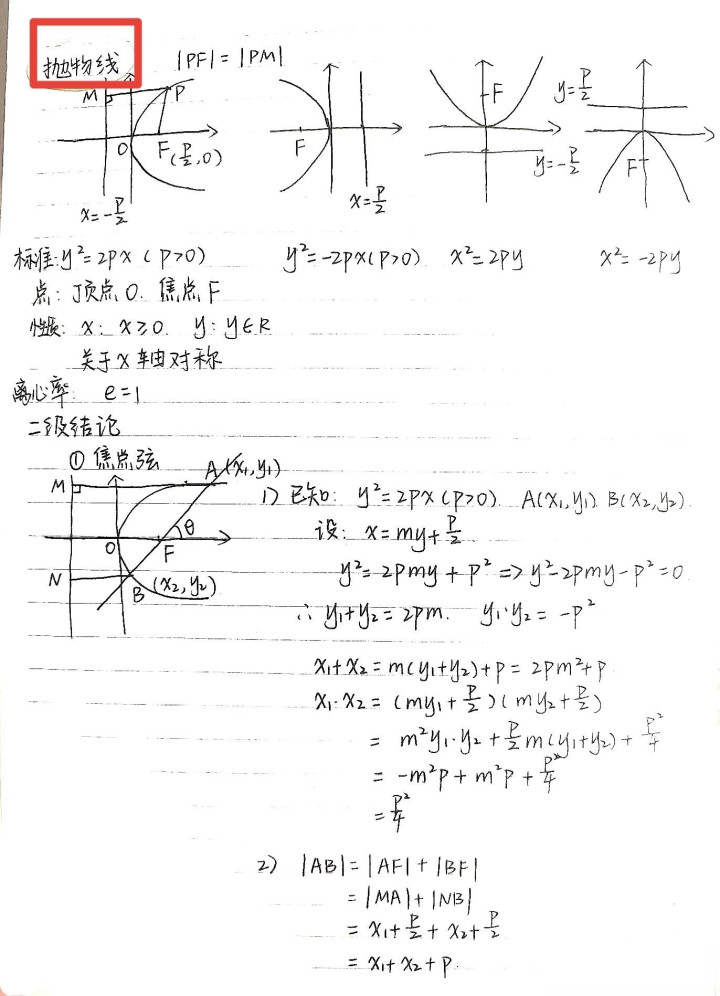 抛物线
|PF|=|PM|
M P
O F(P/2,0)
x=-P/2
F
x=P/2
F
y=-P/2
y=P/2
F
标准:y²=2px(p>0) y²=-2px(p>0) x²=2py x²=-2py
点:顶点O.焦点F
性质:x:x≥0. y:y∈R
关于x轴对称
离心率:e=1
二级结论
①焦点弦
A(x₁,y₁)
M
θ
O F
N
B (x₂,y₂)
1)已知:y²=2px(p>0). A(x₁,y₁) B(x₂,y₂)
设:x=my+P/2
y²=2pmy+p²=>y²-2pmy-p²=0
∴y₁+y₂=2pm. y₁·y₂=-p²
x₁+x₂=m(y₁+y₂)+p=2pm²+p
x₁·x₂=(my₁+P/2)(my₂+P/2)
=m²y₁·y₂+P/2m(y₁+y₂)+P²/4
=-m²p+m²p+P²/4
=P²/4
2) |AB|=|AF|+|BF|
=|MA|+|NB|
=x₁+P/2+x₂+P/2
=x₁+x₂+p.